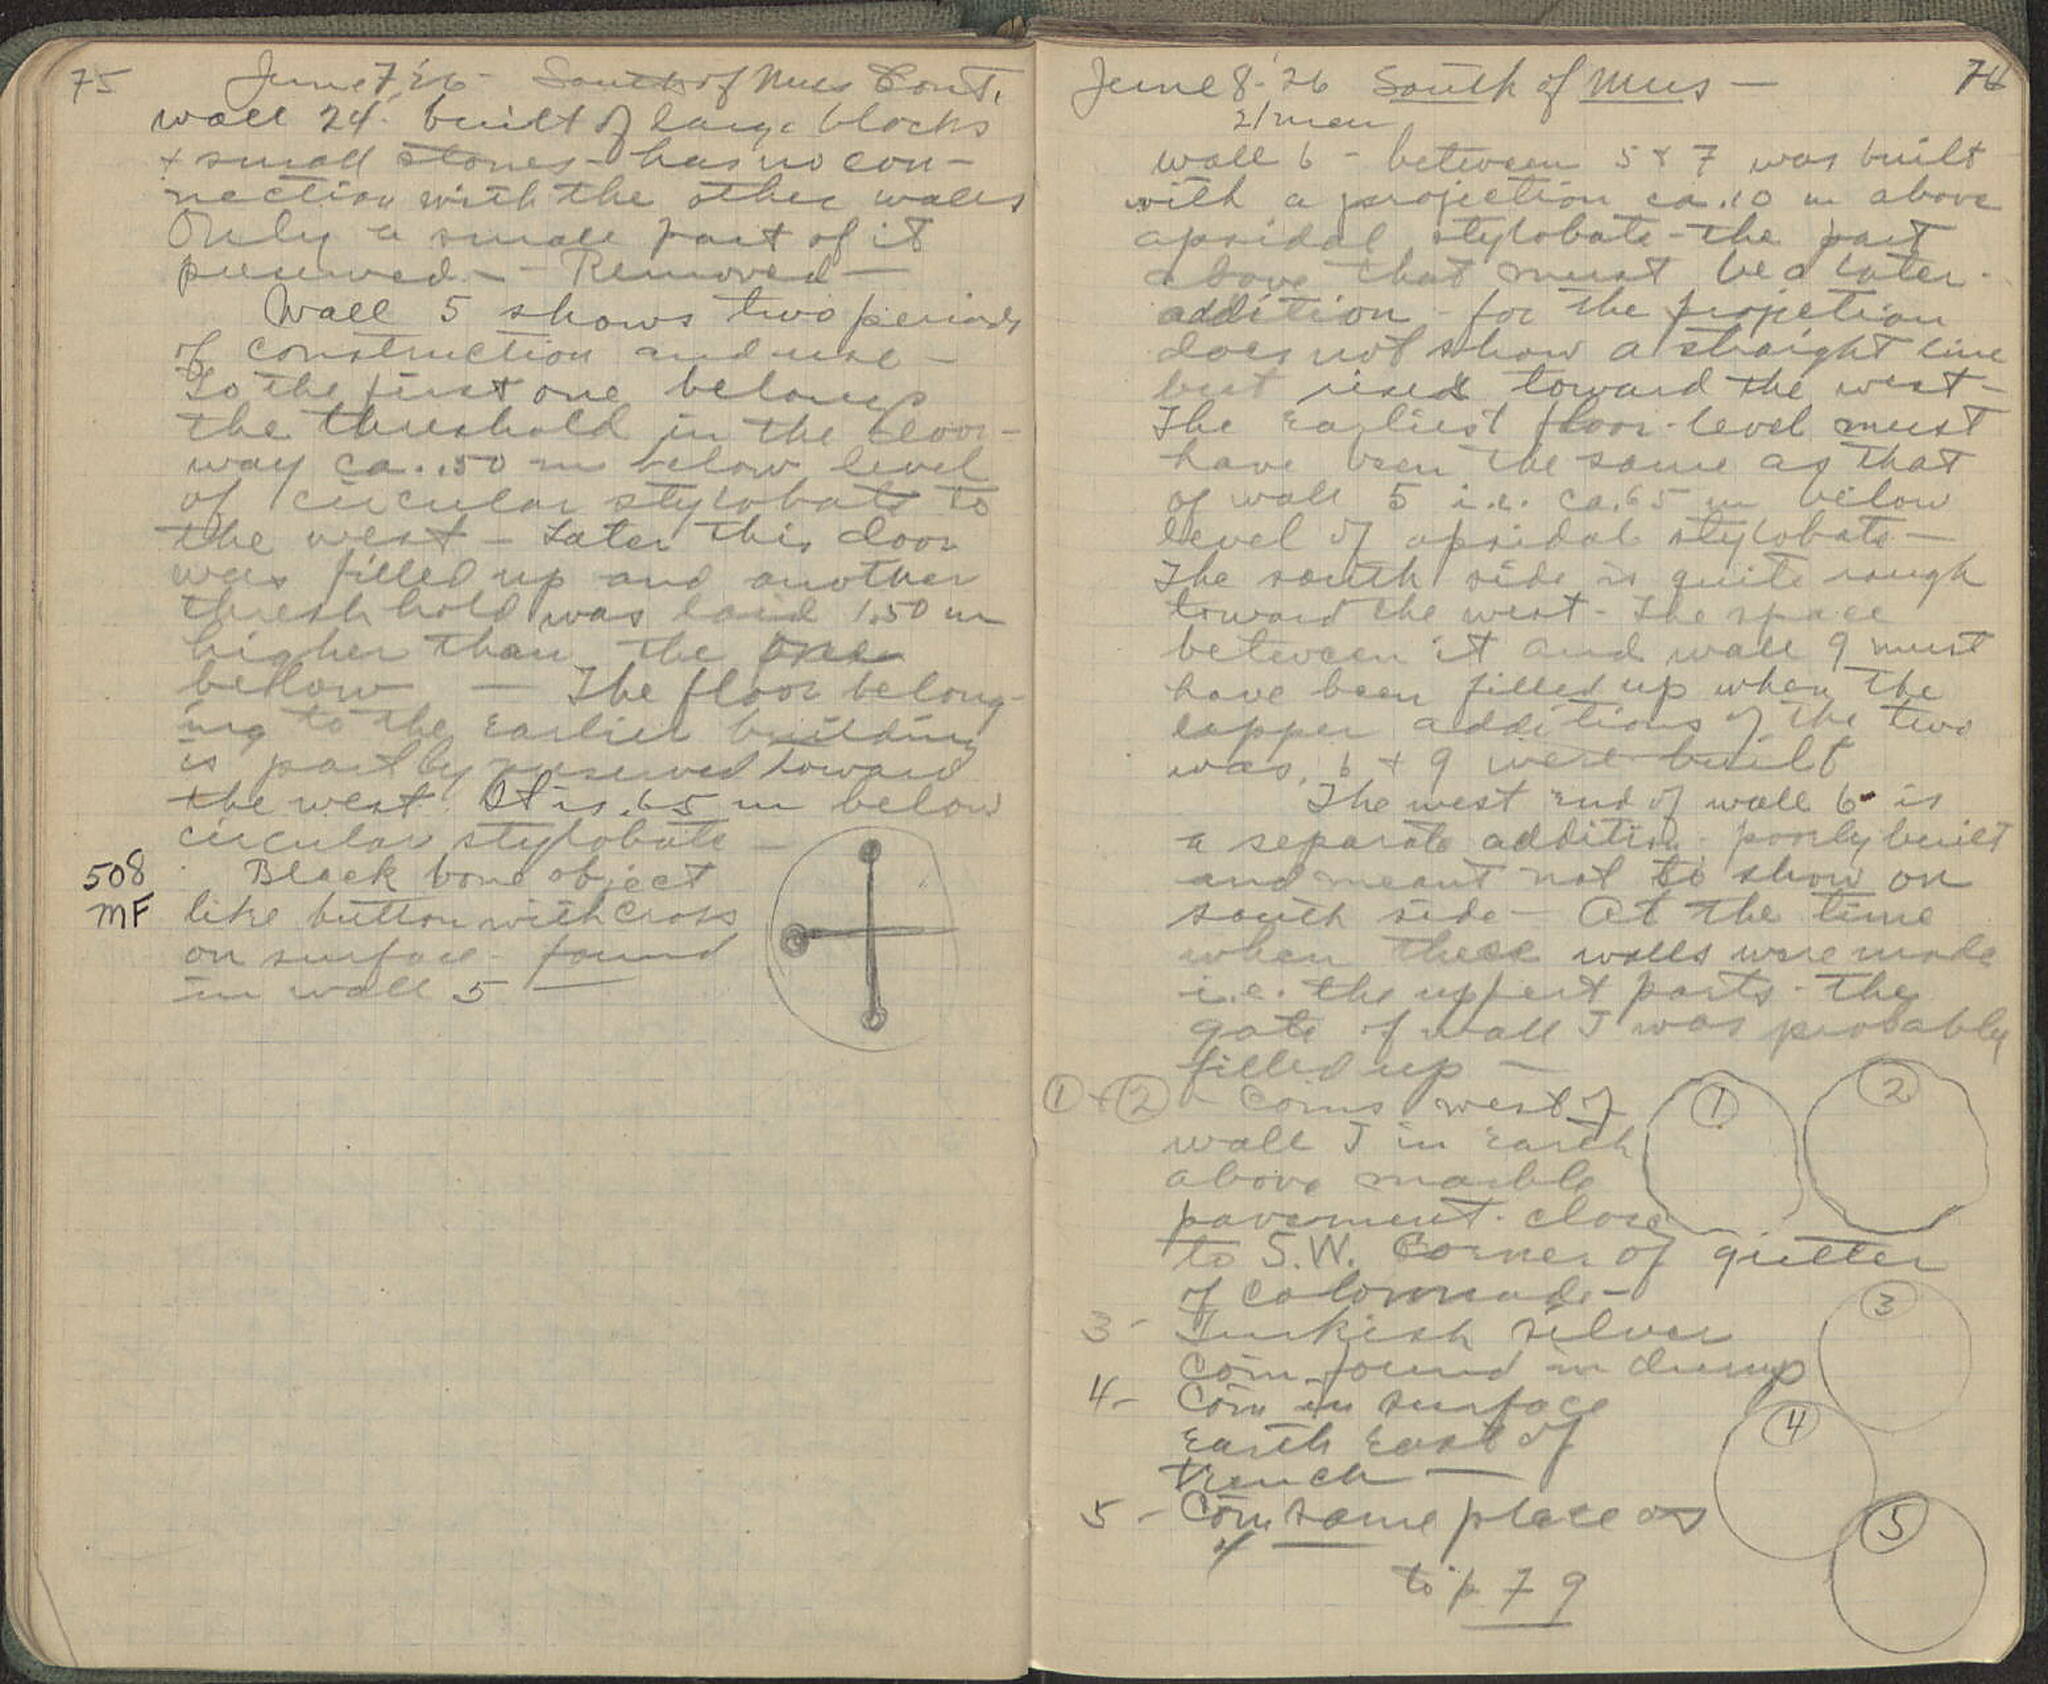 75 June 7, '26 - South of Mus Cont.
wall 24 built of large blocks
+ small stones - has no con-
nection with the other walls
Only a small part of it
preserved - - Removed -
Wall 5 shows two periods
of construction and use -
To the first one belongs
the threshold in the door-
way ca. .50 m below level
of circular stylobate to
the west - Later this door
was filled up and another
thresh hold was laid 1.50 m
higher than the one
bellow - The floor belong-
ing to the earlier building
is partly preserved toward
the west. It is .65 m below
circular stylobate -
508 Black bone object
MF like button with cross
on surface - found
in wall 5 -
June 8 - '26 South of Mus - 76
21 men
wall 6 - between 5 + 7 was built
with a projection ca .10 m above
apsidal stylobate - the part
above that must be a later
addition - for the projetion
does not show a straight line
but rises toward the west -
The Earliest floor-level must
have been the same as that
of wall 5 i.e. ca .65 m below
level of apsidal stylobate -
The south side is quite rough
toward the west - The space
between it and wall 9 must
have been filled up when the
upper additions of the two
was, 6 + 9 were built
The west end of wall 6 is
a separate addition - poorly built
and meant not to show on
south side - At the time
when these walls were made
i.e. the uppert parts - the
gate of wall J was probably
filled up -
① + ② - Coins west of
wall J in earth
above marble
pavement - close
to S.W. Corner of gutter
of colonnade -
3 - Turkish silver
coin found in dump
4 - Coin in surface
earth east of
trench -
5 - Coin same place as
4
to p. 79
①
②
③
④
⑤